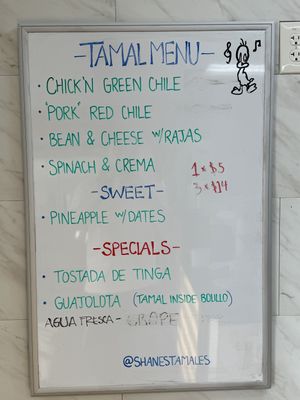 -TAMAL MENU-
• CHICK'N GREEN CHILE
• "PORK" RED CHILE
• BEAN & CHEESE W/RAJAS
• SPINACH & CREMA
1 x $5
3 x $14
-SWEET-
• PINEAPPLE W/DATES
-SPECIALS-
• TOSTADA DE TINGA
• GUAJOLOTA (TAMAL INSIDE BOLILLO)
AGUA FRESCA - GRAPE
@SHANESTAMALES